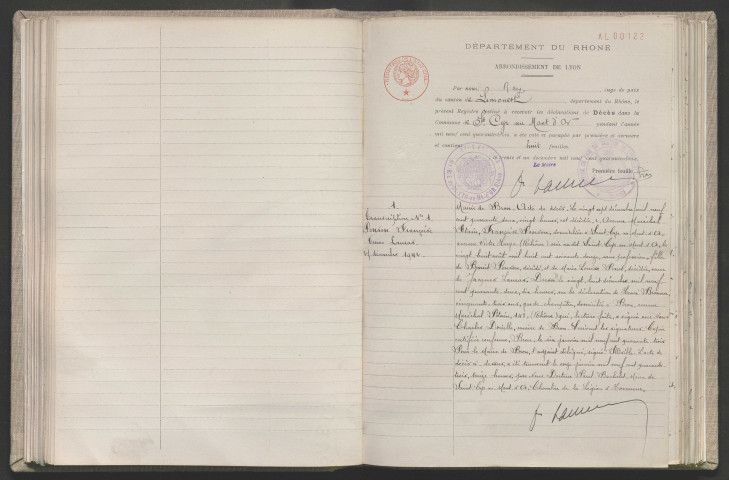 AL 00122
DÉPARTEMENT DU RHÔNE
ARRONDISSEMENT DE LYON
Par nous, Rey juge de paix
du canton de Limonest département du Rhône, le
présent Registre destiné à recevoir les déclarations de Décès dans la
Commune de St Cyr au Mont d'Or pendant l'année
mil neuf cent quarante-trois, a été coté et paraphé par première et dernière
et contient huit feuilles.
décembre mil neuf cent quarante-deux.
Le Maire
Première feuille
1
Transcription N° 1
Ponson Françoise
Veuve Lannes
27 décembre 1942
Mairie de Bron. Acte de décès. Le vingt sept décembre mil neuf
cent quarante deux, vingt heures, est décédée, Avenue Maréchal
Pétain, Françoise Ponson, domiciliée à Saint Cyr au Mont d'Or,
avenue Victor Hugo (Rhône) née au dit Saint Cyr au Mont d'Or, le
vingt huit août mil huit cent soixante, sans profession, fille
de Benoît Ponson, décédé, et de Marie Louise décédée, veuve
de Jacques Lannes. Dressé le vingt huit décembre mil neuf
cent quarante deux, dix heures, sur la déclaration de
cinquante trois ans, garde champêtre, domicilié à Bron, avenue
Maréchal Pétain, (Rhône) qui, lecture faite, a signé avec Nous
Charles maire de Bron. Suivent les signatures. Copie
certifiée conforme, Bron, le six janvier mil neuf cent quarante trois
Pour le Maire de Bron, l'adjoint délégué, signé: L'acte de
décès ci-dessus, a été transcrit le onze janvier mil neuf cent quarante
trois, seize heures, par Nous Docteur Maire de
Saint Cyr au Mont d'Or, Chevalier de la Légion d'Honneur.